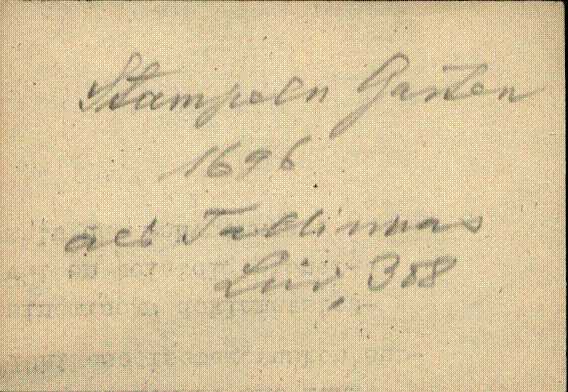 Stampeln Garten
1696
aeb Tallinnas
Liiv, 388